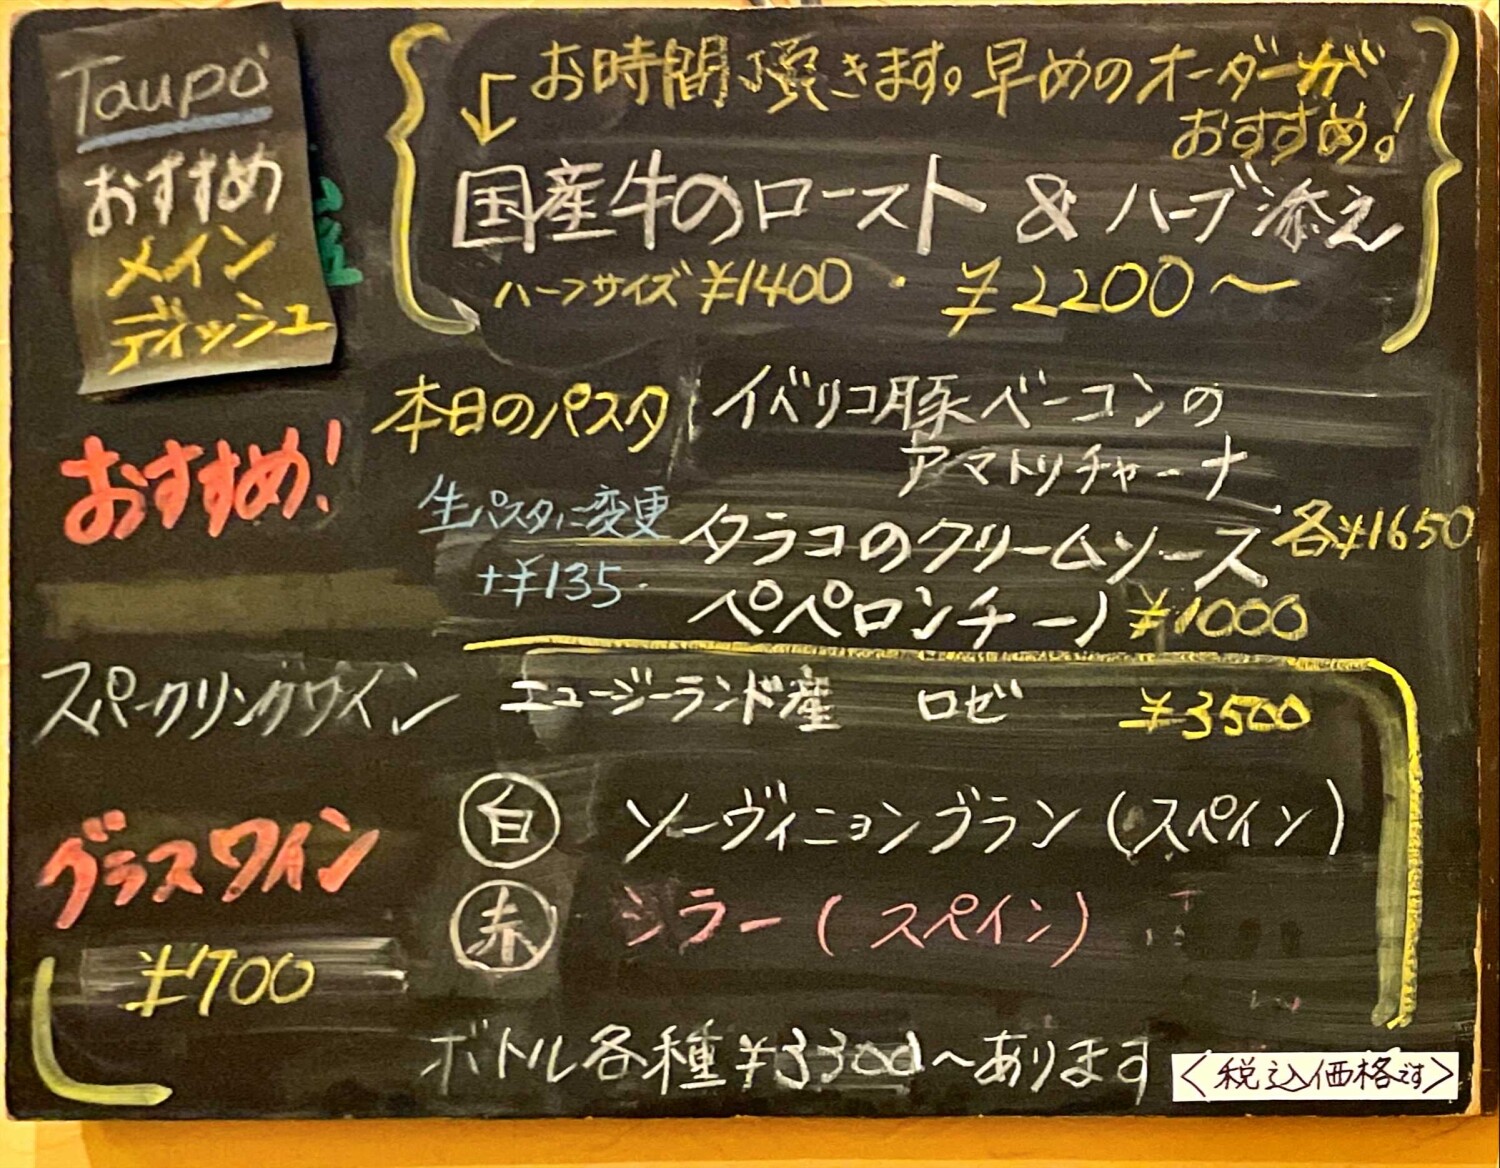 Taupo
おすすめ
メイン
ディッシュ
お時間頂きます。早めのオーダーが
おすすめ!
国産牛のロースト & ハーブ添え
ハーフサイズ ¥1400 ・ ¥2200〜
おすすめ!
本日のパスタ
イベリコ豚ベーコンの
アマトリチャーナ
生パスタに変更
+¥135
タラコのクリームソース
各¥1650
ペペロンチーノ ¥1000
スパークリングワイン
ニュージーランド産 ロゼ ¥3500
グラスワイン
¥700
白 ソーヴィニョンブラン(スペイン)
赤 シラー(スペイン)
ボトル各種¥3300〜あります
<税込価格です>